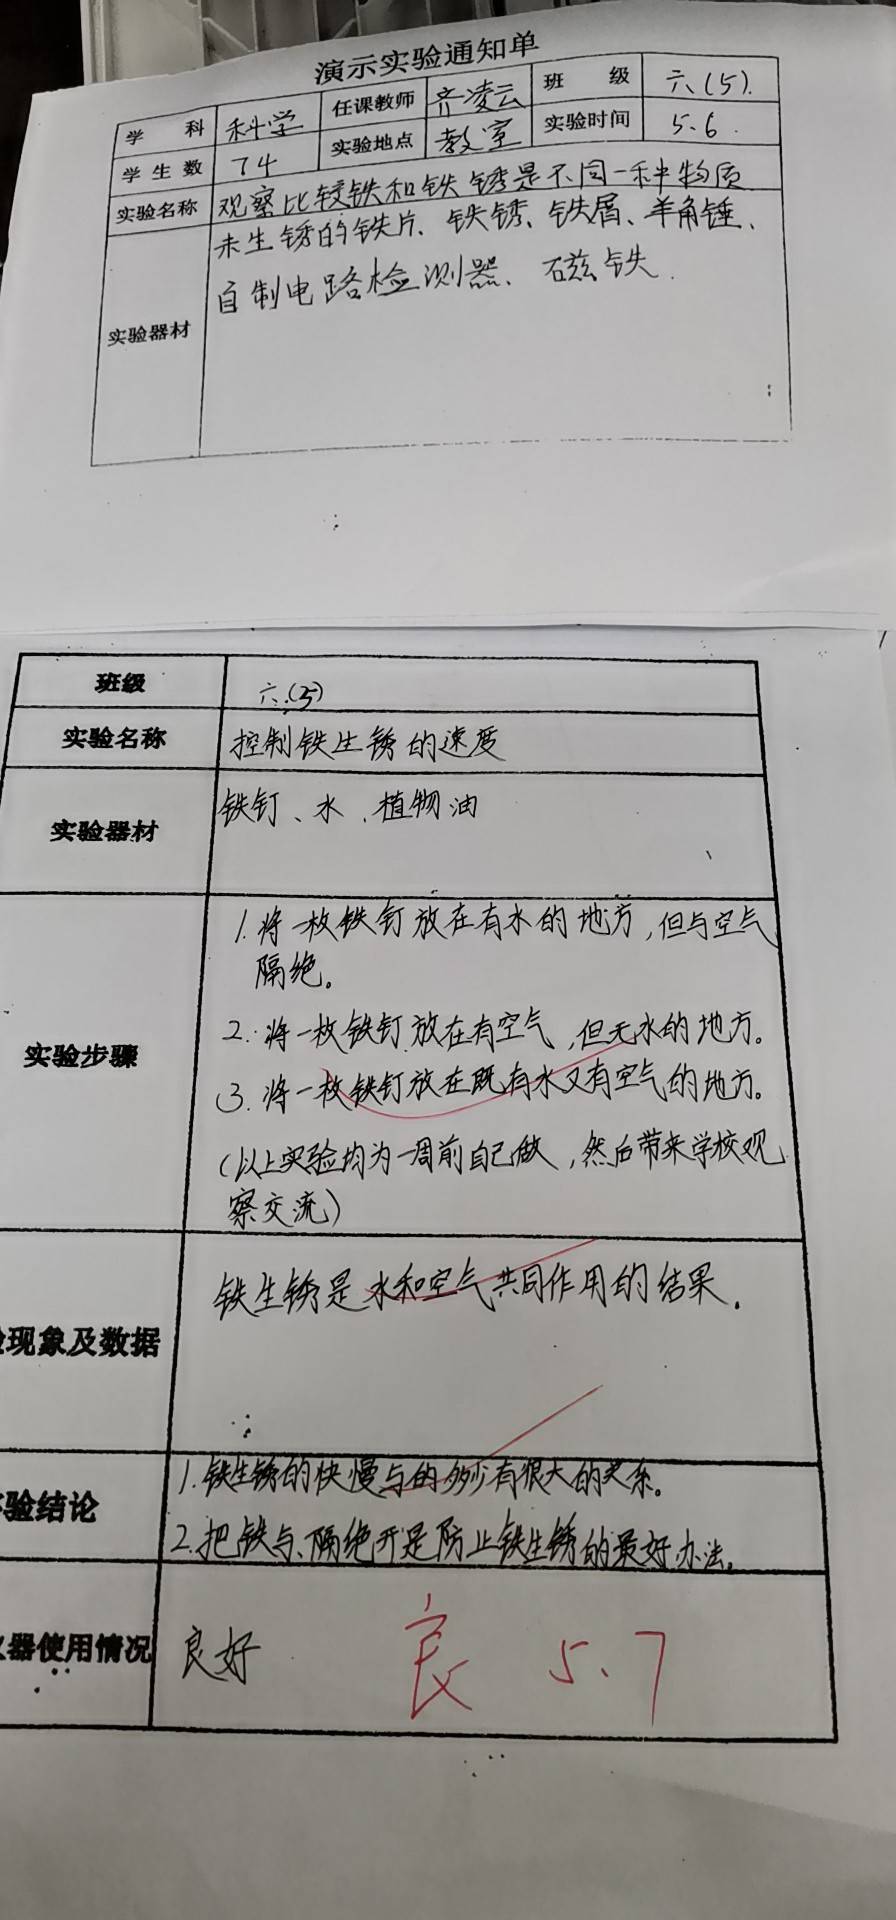 演示实验通知单
学 科 科学 任课教师 齐凌云 班 级 六、(5).
学生数 74 实验地点 教室 实验时间 5.6.
实验名称 观察比较铁和铁锈是不同一种物质
实验器材 未生锈的铁片、铁锈、铁屑、羊角锤、
自制电路检测器、磁铁.
班级 六.(5)
实验名称 控制铁生锈的速度
实验器材 铁钉、水、植物油
实验步骤
1.将一枚铁钉放在有水的地方,但与空气
隔绝。
2.将一枚铁钉放在有空气,但无水的地方。
3.将一枚铁钉放在既有水又有空气的地方。
(以上实验均为一周前自己做,然后带来学校观
察交流)
验现象及数据 铁生锈是水和空气共同作用的结果。
验结论
1.铁生锈的快慢与的多少有很大的关系。
2.把铁与、隔绝开是防止铁生锈的最好办法。
仪器使用情况 良好 良 5.7